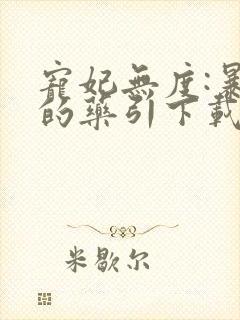 寵妃無度:暴
的藥引下載
米歇尔